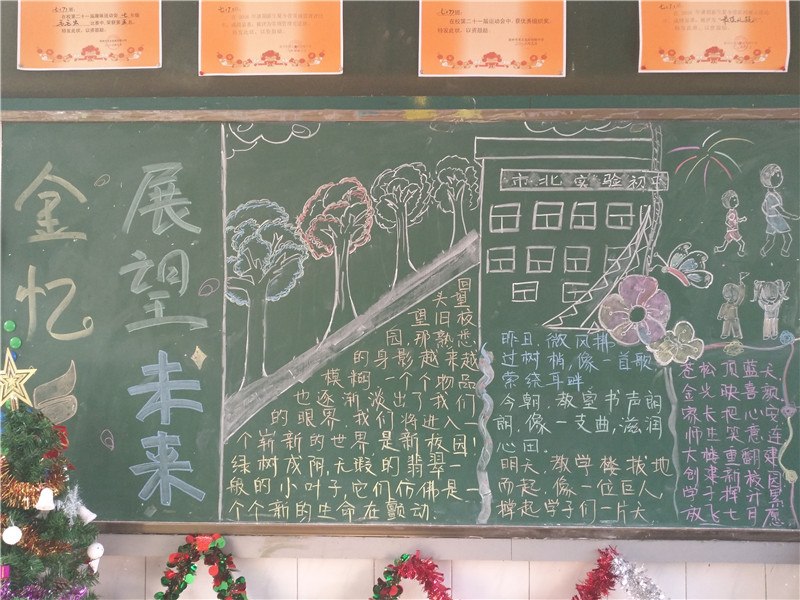 七(7)班:
在校第二十一届运动会中,获优秀组织奖,
特发此状,以资鼓励。
金忆
展望未来
市北实验初中
回
头望
望旧校
园.那熟悉
的身影越来越
模糊,一个个物品
也逐渐淡出了我们
的眼界.我们将进入一
个崭新的世界是新校园!
绿树成阴,无瑕的翡翠一
般的小叶子,它们仿佛是一
个个新的生命在颤动.
昨日,微风拂
过树梢,像一首歌
萦绕耳畔
今朝,教室书声朗
朗,像一支曲,滋润
心田.
明天,教学楼拔地
而起,像一位巨人,
撑起学子们一片天.
苍松顶蓝天
金光映喜颜
家长把心安
师生笑意连
大楼重翻建
创建新校园
学子挥汗累
放飞七月愿